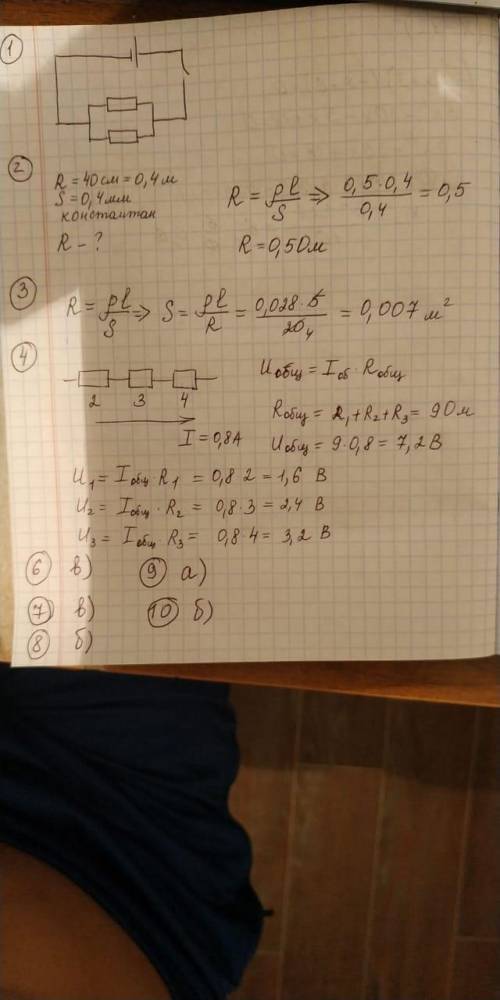 1
2
R = 40 см = 0,4 м
S = 0,4 мм
константан
R - ?
R = ρl/S => 0,5·0,4/0,4 = 0,5
R = 0,5 Ом
3
R = ρl/S => S = ρl/R = 0,028·5/20 4 = 0,007 м²
4
2 3 4
I = 0,8 А
U общ = I об · R общ
R общ = R₁ + R₂ + R₃ = 9 Ом
U общ = 9·0,8 = 7,2 В
U₁ = I общ R₁ = 0,8 2 = 1,6 В
U₂ = I общ · R₂ = 0,8·3 = 2,4 В
U₃ = I общ R₃ = 0,8·4 = 3,2 В
6 в) 9 а)
7 в) 10 б)
8 б)